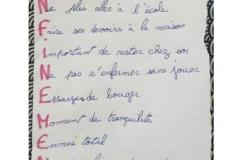 Ne plus aller à l'école
Faire ses devoirs à la maison
Important de rester chez soi
Ne pas s'enfermer sans jouer
Essayez de bouger
Moment de tranquilités
Ennui total
N